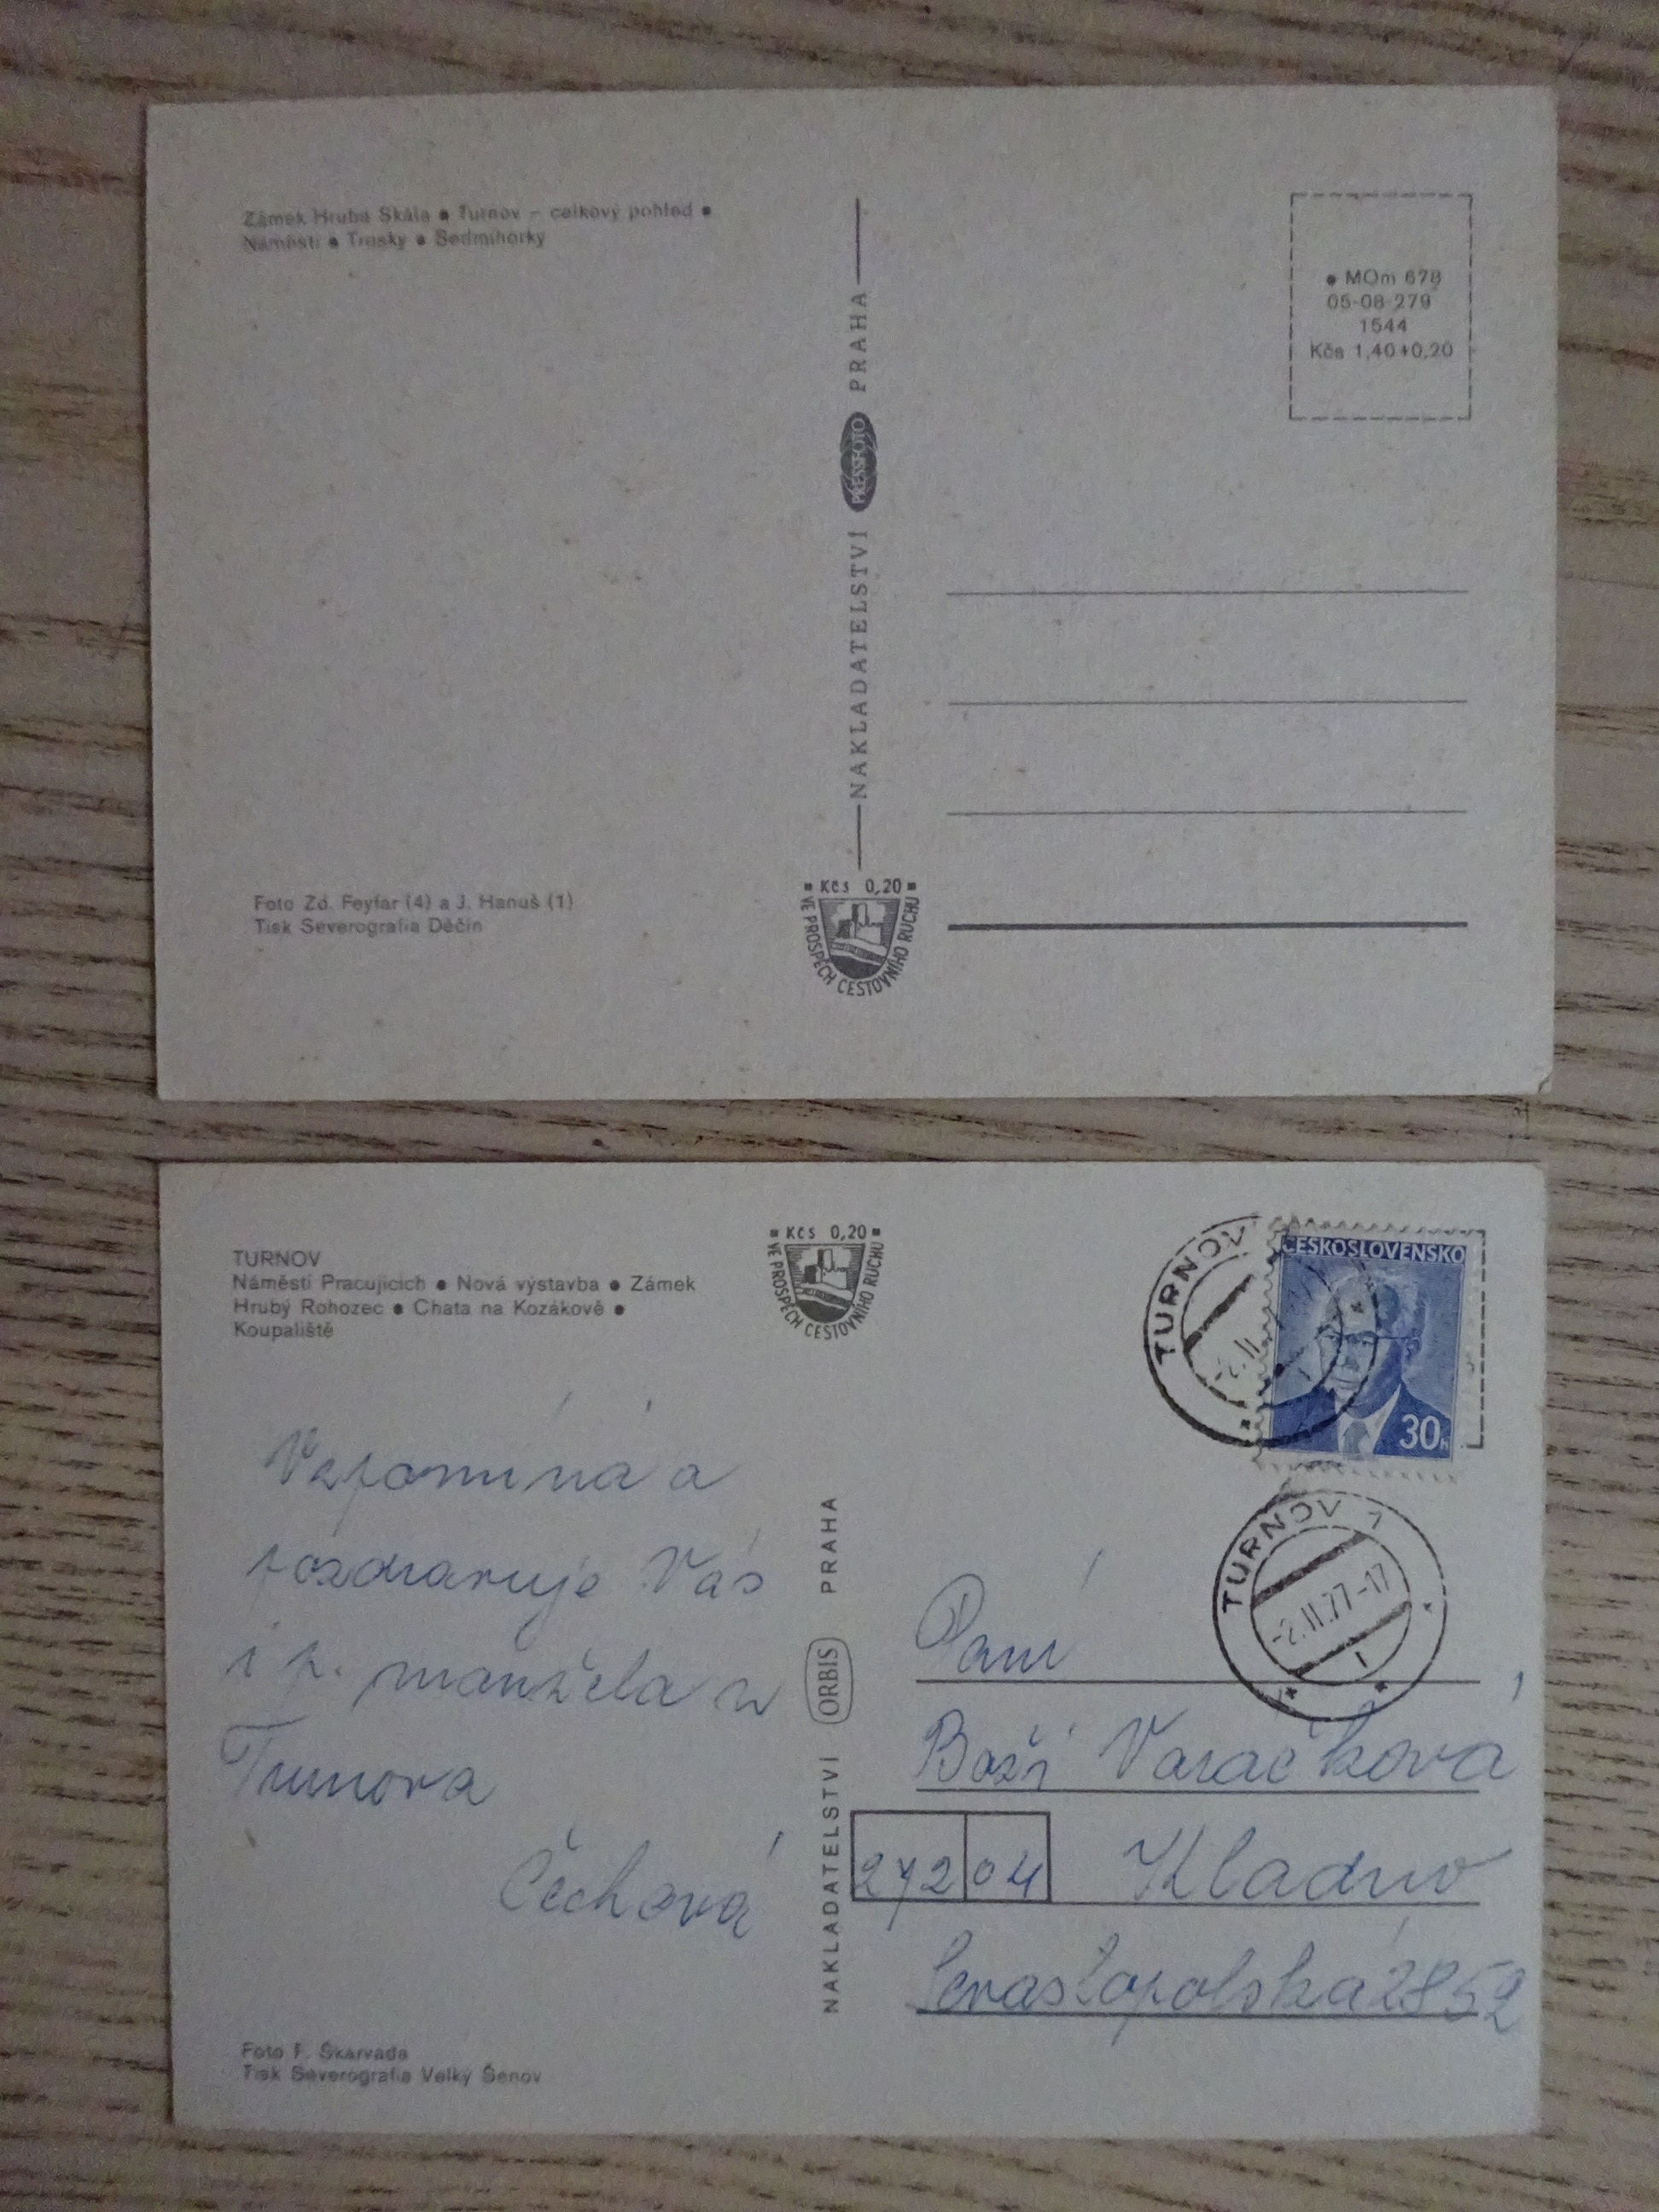 Zámek Hrubá Skála • Turnov – celkový pohled •
Náměstí • Trosky • Sedmihorky
• MOm 678
05-08-279
1544
Kčs 1,40+0,20
NAKLADATELSTVÍ PRESSFOTO PRAHA
Foto Zd. Feyfar (4) a J. Hanuš (1)
Tisk Severografia Děčín
Kčs 0,20
VE PROSPĚCH CESTOVNÍHO RUCHU
TURNOV
Náměstí Pracujících • Nová výstavba • Zámek
Hrubý Rohozec • Chata na Kozákově •
Koupaliště
Kčs 0,20
VE PROSPĚCH CESTOVNÍHO RUCHU
TURNOV
ČESKOSLOVENSKO
30h
TURNOV 1
-2.II.77-17
Vzpomíná a
pozdravuje Vás
i p. manžela z
Turnova
Čechová
NAKLADATELSTVÍ ORBIS PRAHA
Paní
Boží Varačková
272 04 Kladno
Sevastopolská 2852
Foto F. Škarvada
Tisk Severografia Velký Šenov